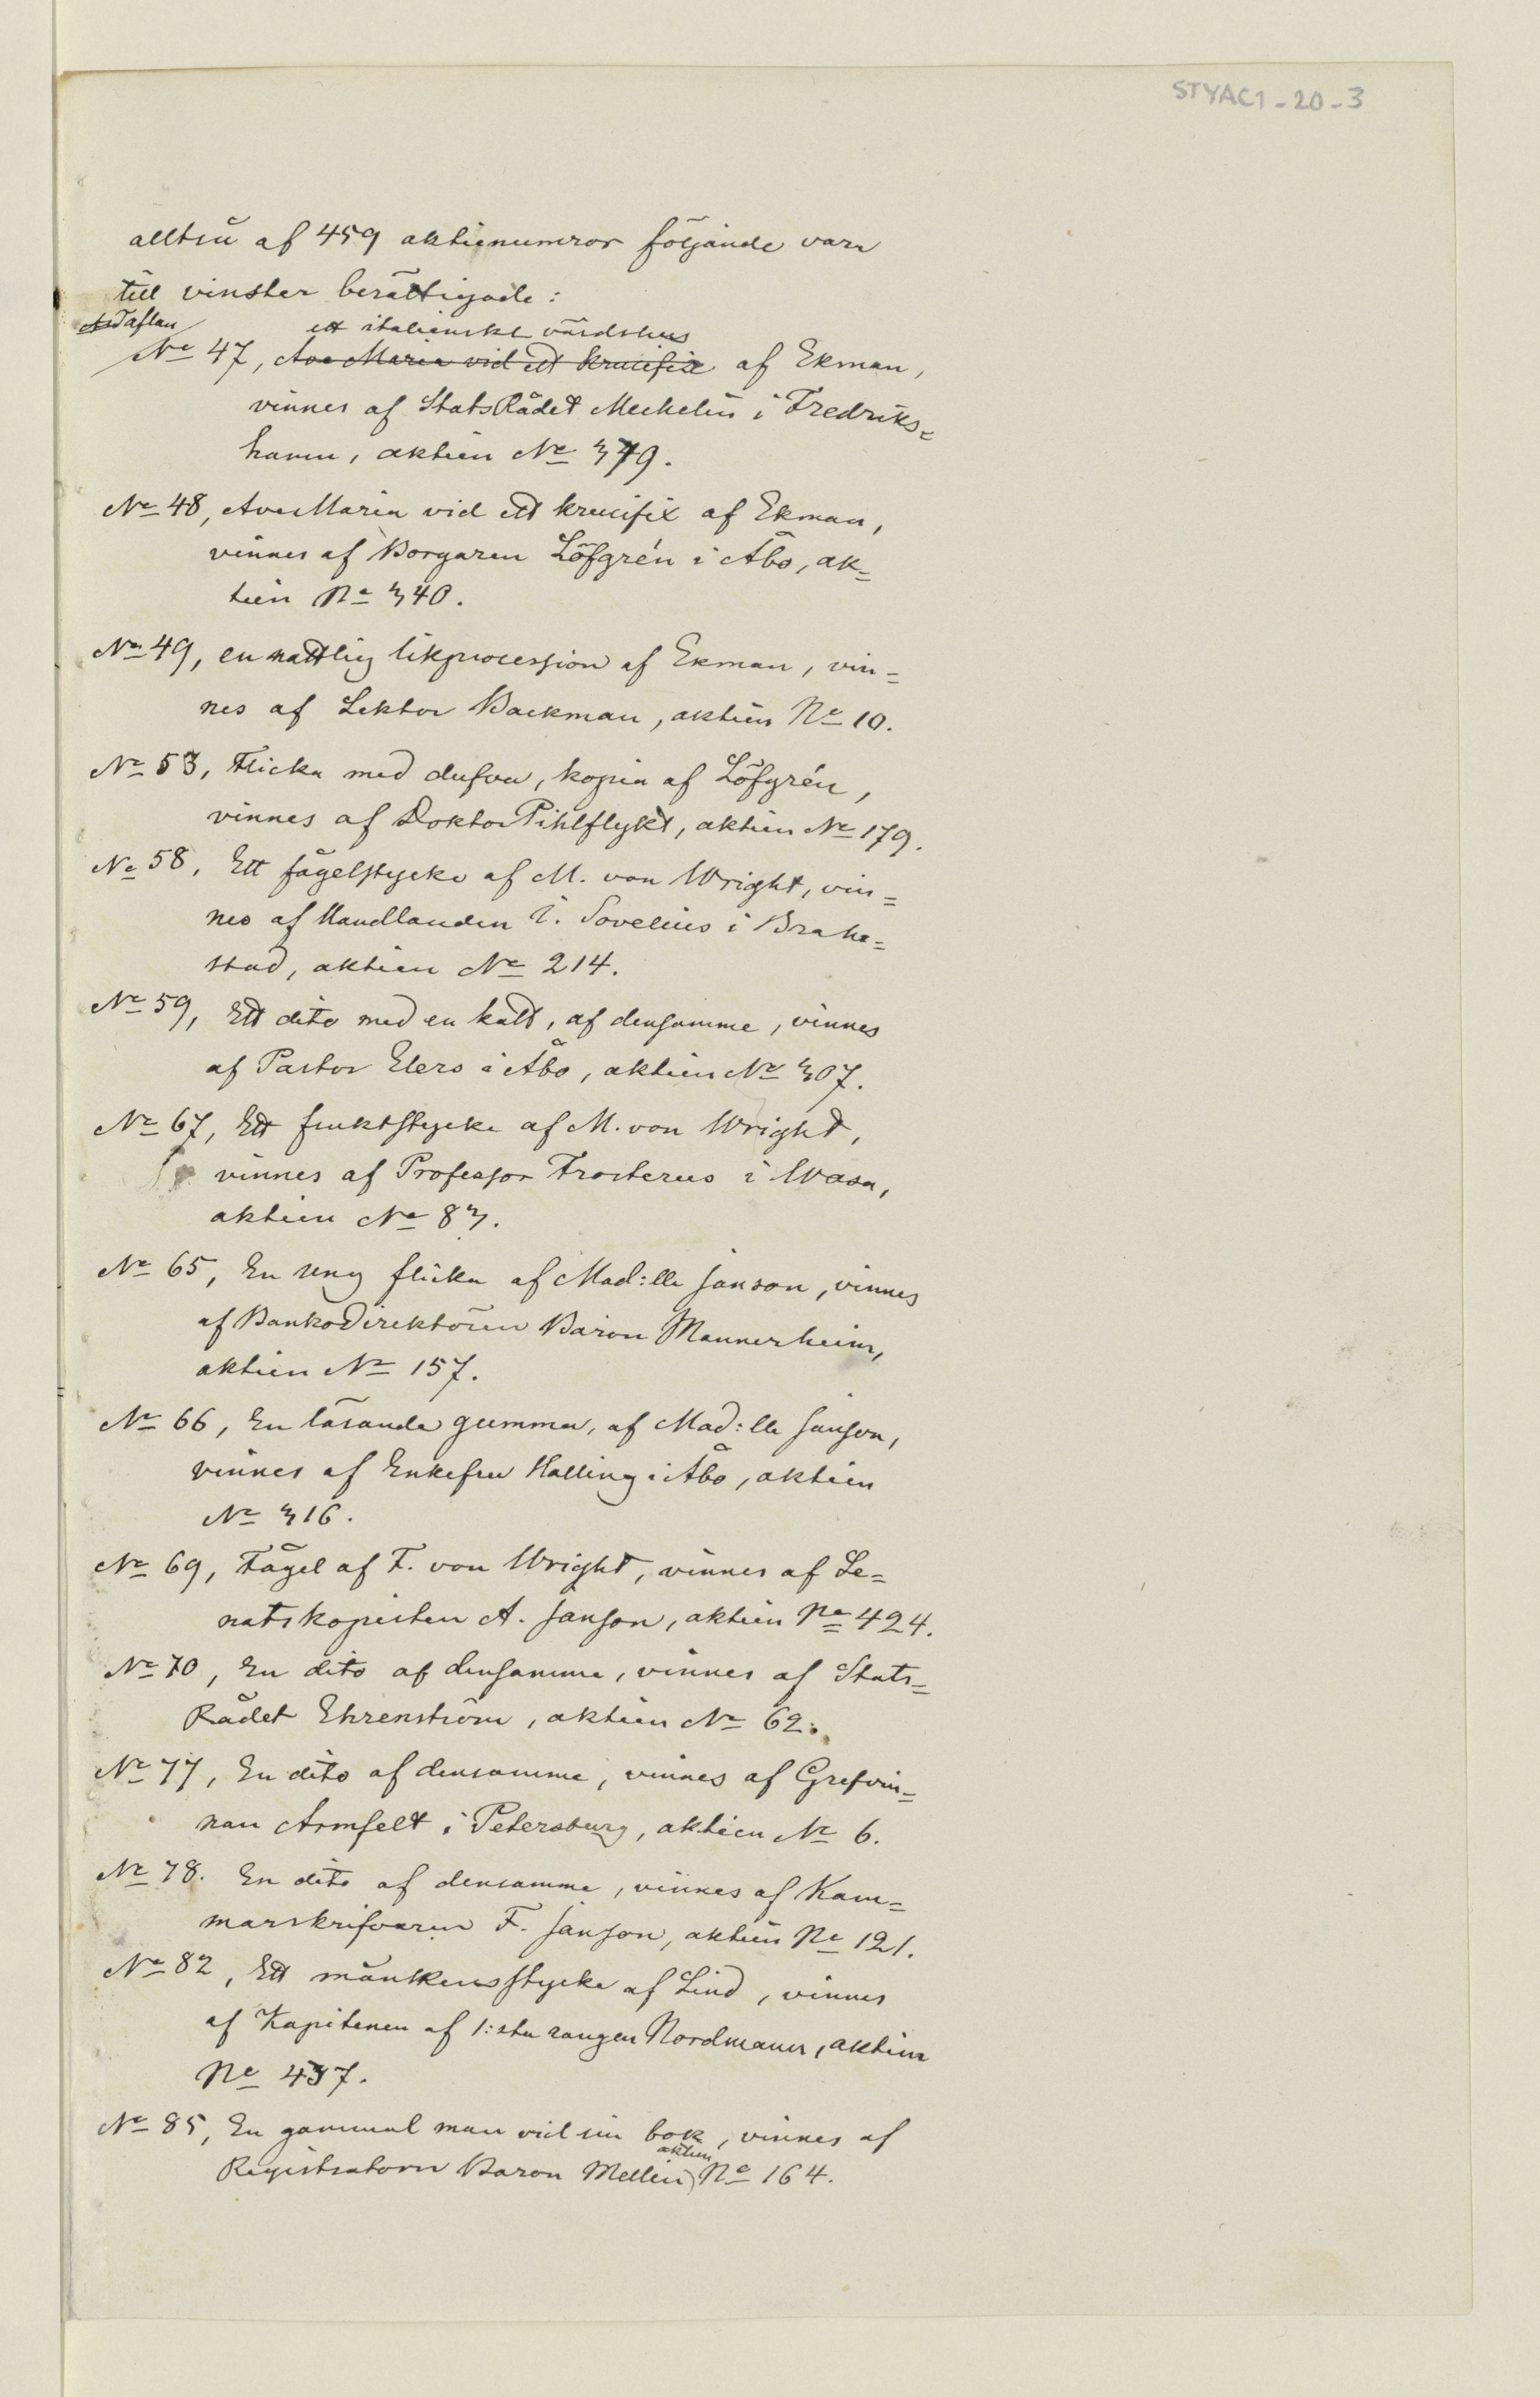 STYAC1-20-3
alltså af 459 aktienumror följande voro
till vinster berättigade:
Taflan
ett italienskt värdshus
No 47, Ave Maria vid ett krucifix af Ekman,
vinnes af StatsRådet Mechelin i Fredriks=
hamn, aktien No 379.
No 48, Ave Maria vid ett krucifix af Ekman,
vinnes af Borgaren Löfgrén i Åbo, ak=
tien No 340.
No 49, en nattlig likprocession af Ekman, vin=
nes af Lektor Backman, aktien No 10.
No 53, Flicka med dufva, kopia af Löfgrén,
vinnes af Doktor Pihlflykt, aktien No 179.
No 58, Ett fågelstycke af M. von Wright, vin=
nes af Handlanden I. Sovelius i Brahe=
stad, aktien No 214.
No 59, Ett dito med en katt, af densamme, vinnes
af Pastor Elers i Åbo, aktien No 307.
No 67, Ett fruktstycke af M. von Wright,
vinnes af Professor Frosterus i Wasa,
aktien No 83.
No 65, En ung flicka af Mad:lle Janson, vinnes
af BankoDirektören Baron Mannerheim,
aktien No 157.
No 66, En läsande gumma, af Mad:lle Janson,
vinnes af Enkefru Halling i Åbo, aktien
No 316.
No 69, Fågel af F. von Wright, vinnes af Se=
natskopisten A. Janson, aktien No 424.
No 70, En dito af densamme, vinnes af Stats=
Rådet Ehrenström, aktien No 62.
No 77, En dito af densamme, vinnes af Grefvin=
nan Armfelt i Petersburg, aktien No 6.
No 78. En dito af densamme, vinnes af Kam=
marskrifvaren F. Janson, aktien No 121.
No 82, Ett månskensstycke af Lind, vinnes
af Kapitenen af 1:sta rangen Nordmann, aktien
No 437.
No 85, En gammal man vid sin bok, vinnes af
aktien
Registratorn Baron Mellin, No 164.